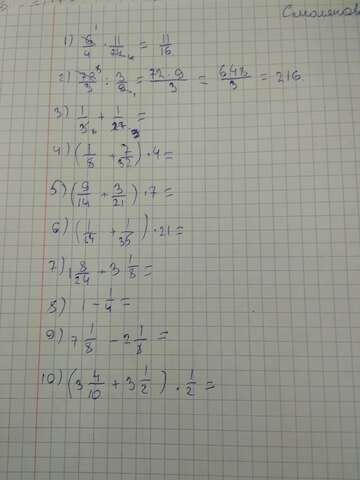 Смоляков
1) 6/4 · 11/24 = 11/16
2) 72/3 : 3/9 = 72·9/3 = 648/3 = 216
3) 1/3 + 1/27 =
4) (1/8 + 7/32) · 4 =
5) (9/14 + 3/21) · 7 =
6) (1/14 + 1/35) · 21 =
7) 1 8/24 + 3 1/8 =
8) 1 - 1/4 =
9) 7 1/8 - 2 1/8 =
10) (3 4/10 + 3 1/2) · 1/2 =